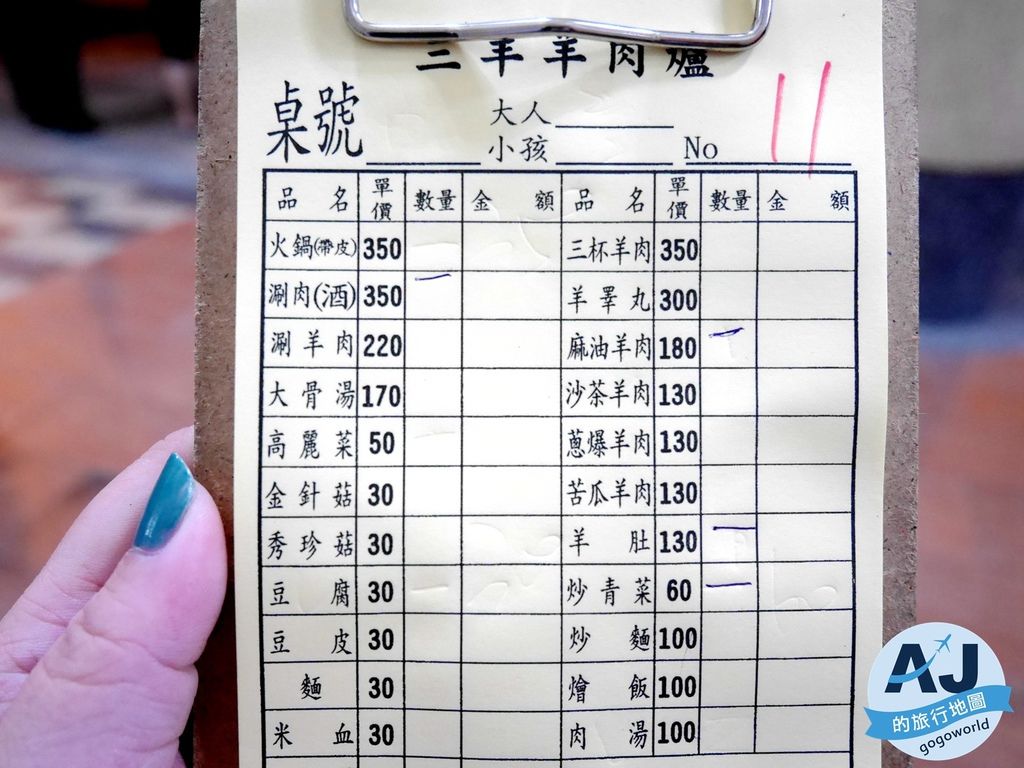 三羊羊肉爐
桌號
大人
小孩
No 11
品名 單價 數量 金額 品名 單價 數量 金額
火鍋(帶皮) 350 三杯羊肉 350
涮肉(酒) 350 一 羊睪丸 300
涮羊肉 220 麻油羊肉 180 一
大骨湯 170 沙茶羊肉 130
高麗菜 50 蔥爆羊肉 130
金針菇 30 苦瓜羊肉 130
秀珍菇 30 羊肚 130 一
豆腐 30 炒青菜 60 一
豆皮 30 炒麵 100
麵 30 燴飯 100
米血 30 肉湯 100
AJ
的旅行地圖
gogoworld